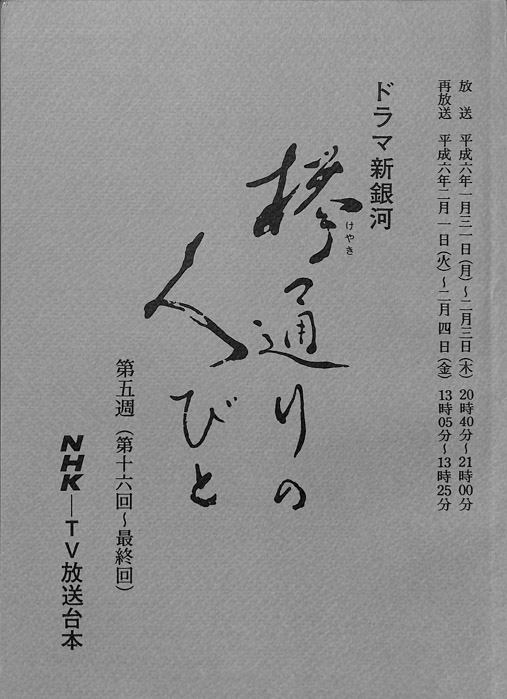 放　送　平成六年一月三一日(月)～二月三日(木)　20時40分～21時00分
再放送　平成六年二月一日(火)～二月四日(金)　13時05分～13時25分
ドラマ新銀河
欅通りの
けやき
人びと
第五週（第十六回～最終回）
NHK―TV放送台本